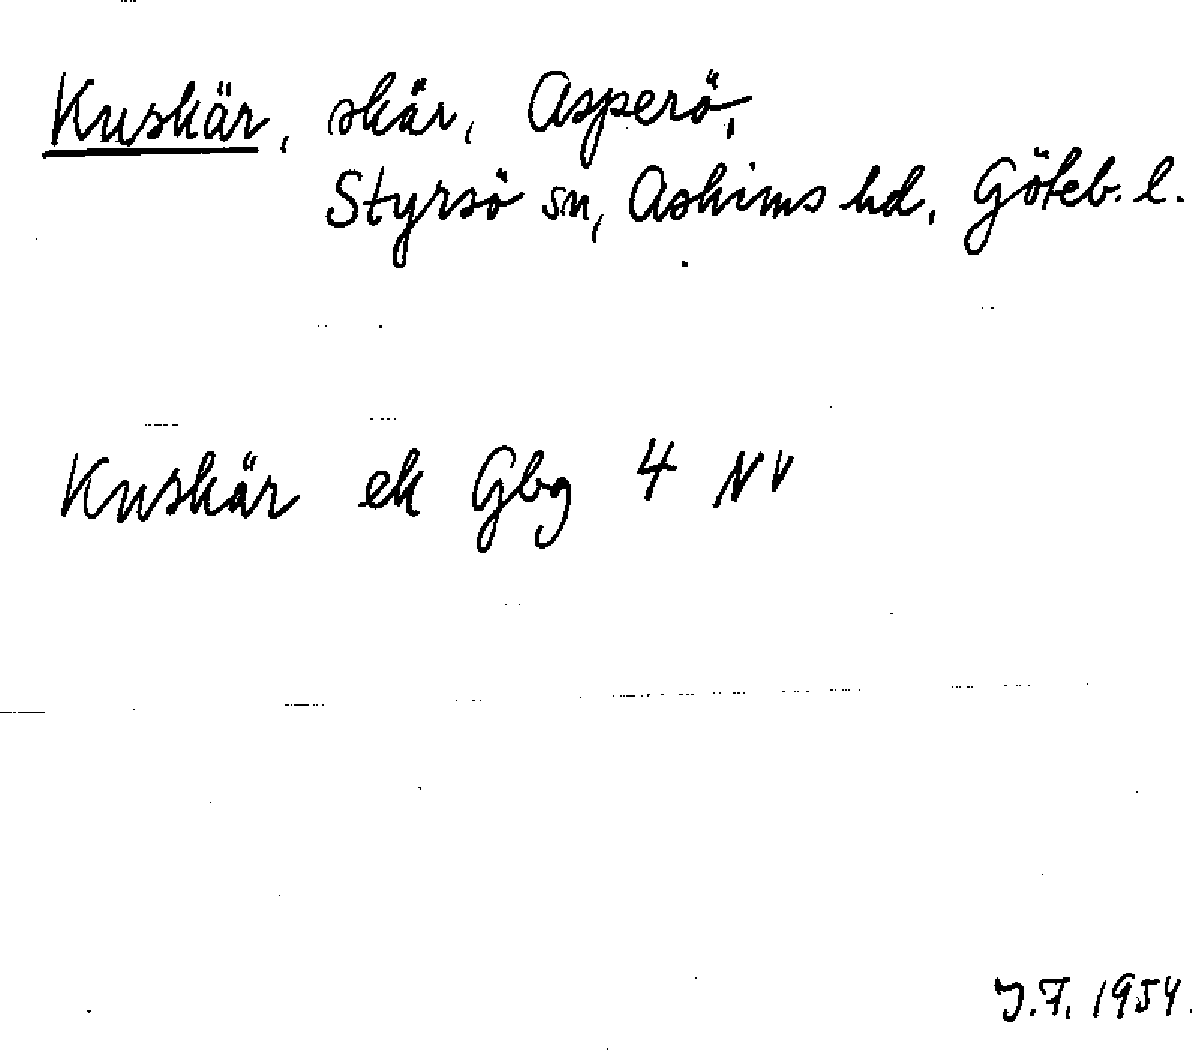 Kuskär, skär, Asperö,
Styrsö sn, Askims hd, Göteb. l.
Kuskär ek Gbg 4 NV
J.F. 1954.